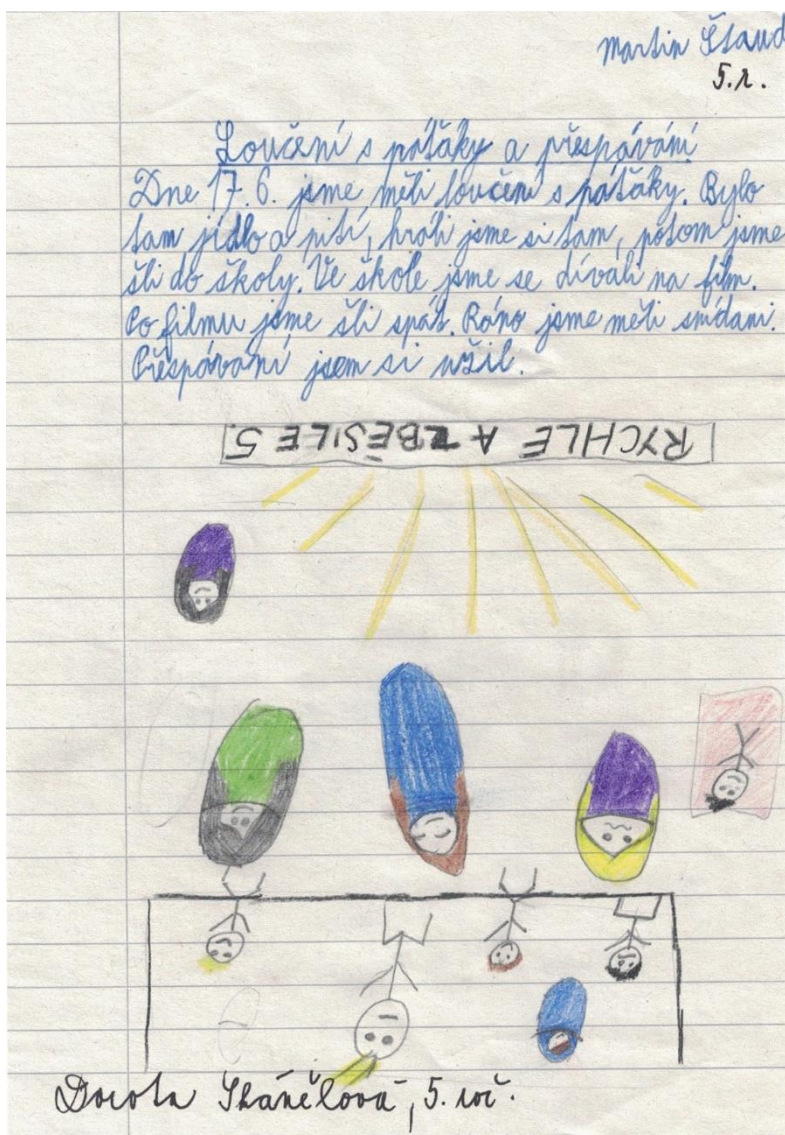 Martin Štaud
5.r.
Loučení s páťáky a přespávání
Dne 17.6. jsme měli loučení s páťáky. Bylo
tam jídlo a pití, hráli jsme si tam, potom jsme
šli do školy. Ve škole jsme se dívali na film.
Po filmu jsme šli spát. Ráno jsme měli snídani.
Přespávání jsem si užil.
RYCHLE A ZBĚSILE 5
Dorota 5. roč.